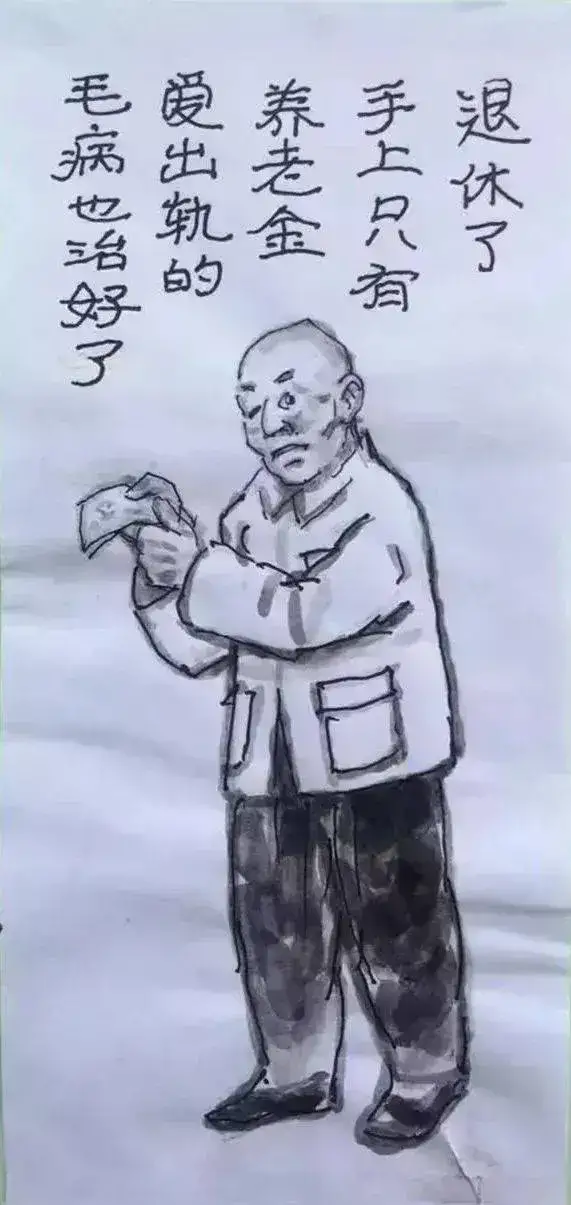 退休了
手上只有
养老金
爱出轨的
毛病也治好了